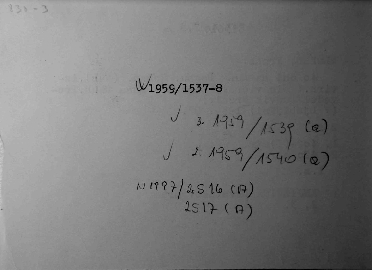 131-3
W1959/1537-8
√ 3. 1959/1539 (a)
√ 2. 1959/1540 (a)
N 1997/2516 (A)
2517 (A)